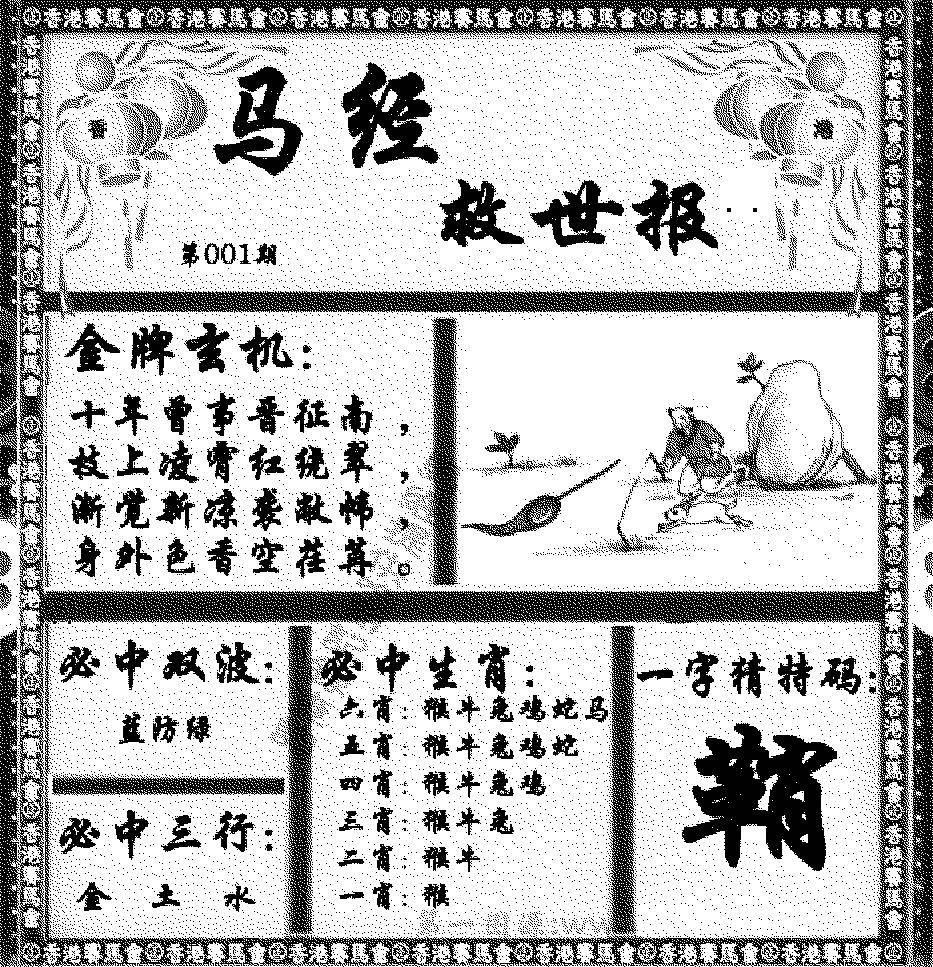 香港賽馬會 香港賽馬會 香港賽馬會 香港賽馬會 香港賽馬會 香港賽馬會 香港賽馬會
香
港
马经
救世报··
第001期
金牌玄机：
十年曾事晋征南，
枝上凌霄红绕翠，
渐觉新凉袭敝帏，
身外色香空荏苒。
必中双波：
蓝防绿
必中三行：
金 土 水
必中生肖：
六肖：猴牛兔鸡蛇马
五肖：猴牛兔鸡蛇
四肖：猴牛兔鸡
三肖：猴牛兔
二肖：猴牛
一肖：猴
一字猜特码：
鞘
香港賽馬會 香港賽馬會 香港賽馬會 香港賽馬會 香港賽馬會 香港賽馬會 香港賽馬會